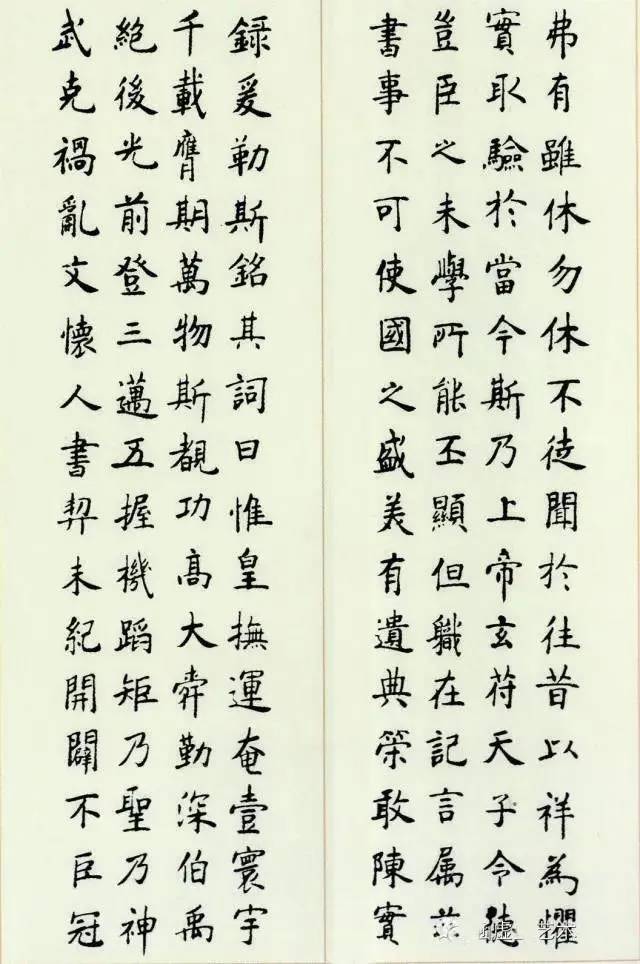 弗有雖休勿休不徒聞於往昔以祥為懼
實取驗於當今斯乃上帝玄符天子令德
豈臣之末學所能丕顯但職在記言属茲
書事不可使國之盛美有遺典策敢陳實
録爰勒斯銘其詞曰惟皇撫運奄壹寰宇
千載膺期萬物斯覩功高大舜勤深伯禹
絶後光前登三邁五握機蹈矩乃聖乃神
武克禍亂文懷人書契未紀開闢不臣冠